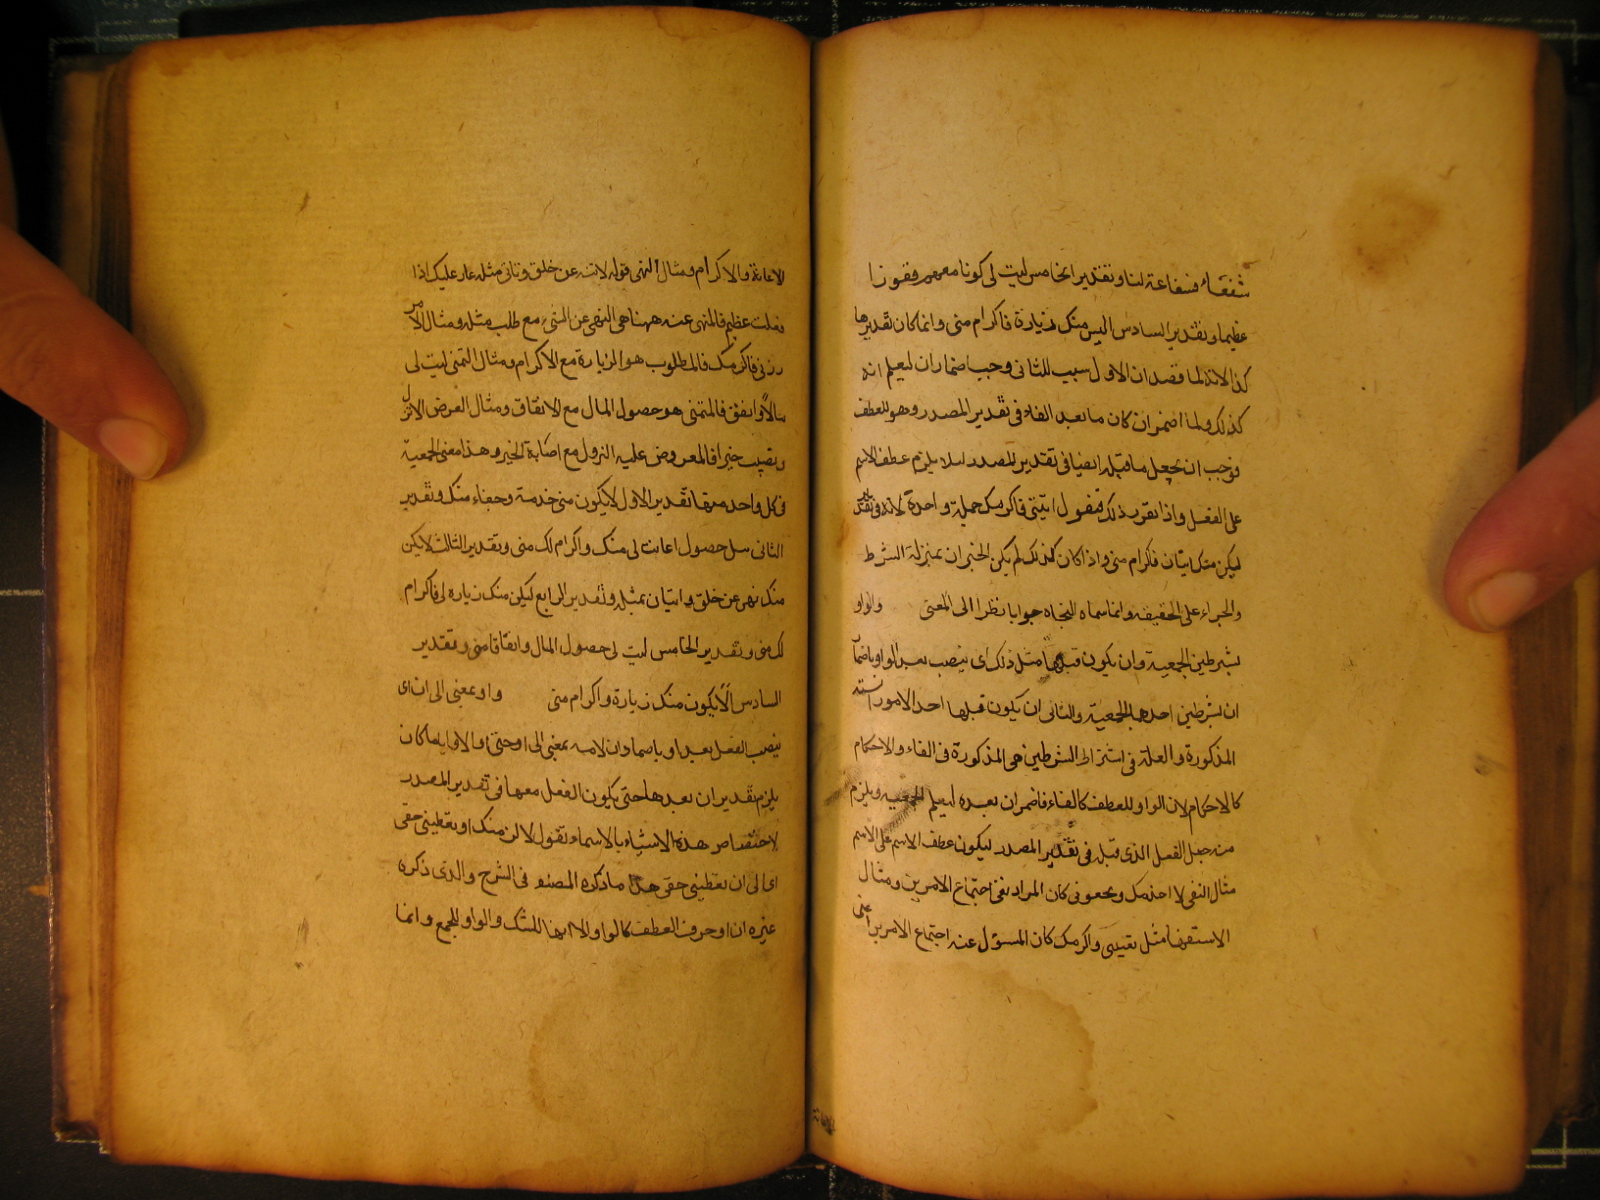 شفعاء فشفاعة لنا وتقدير الخامس ليت لى كونا معهم ففوزا
عظيما وتقدير السادس اليس منك زيارة فاكرام منى وانما كان تقديرها
كذا لانه لما قصد ان الاول سبب للثانى وجب اضمار ان ليعلم انه
كذلك ولما اضمر ان كان ما بعد الفاء فى تقدير المصدر وهو للعطف
فوجب ان يجعل ما قبله ايضا فى تقدير المصدر لئلا يلزم عطف الاسم
على الفعل واذا تقرر ذلك فنقول ايتنى فاكرمك جملة واحدة لانه فى تقدير
ليكن منك اتيان فاكرام منى واذا كان كذلك لم يكن الجنبى ان بمنزلة الشرط
والجزاء على الحقيقة وانما سماه النحاه جوابا نظرا الى المعنى والواو
بشرطين الجمعية وان يكون قبلها مثل ذلك اى ينصب بعد الواو باضمار
ان بشرطين احدهما الجمعية والثانى ان يكون قبلها احد الامور الستة
المذكورة والعلة فى اشتراط الشرطين هى المذكورة فى الفاء والاحكام
كالاحكام لان الواو للعطف كالفاء فاضمر ان بعده ليعلم الجمعية ويلزم
من جعل الفعل الذى قبله فى تقدير المصدر ليكون عطف الاسم على الاسم
مثال النفى لا اخدمك وتجفونى كان المراد نفى اجتماع الامرين ومثال
الاستفهام مثل واكرمك كان المسؤل عنه اجتماع الامرين اعنى
الاعانة
الاعانة والاكرام ومثال النهى قوله لا تنه عن خلق وتاتى مثله عار عليك اذا
فعلت عظيم فالمنهى عنه ههنا هى النهى عن الشئ مع طلب مثله ومثال الامر
زرنى فاكرمك فالمطلوب هو الزيارة مع الاكرام ومثال التمنى ليت لى
مالاً وانفق فالمتمنى هو حصول المال مع الانفاق ومثال العرض الا تنزل
وتصيب خيرا فالمعروض عليه النزول مع اصابة الخير وهذا معنى الجمعية
فى كل واحد منها تقدير الاول لا يكون منى خدمة وجفاء منك وتقدير
الثانى هل حصول اعانت لى منك واكرام لك منى وتقدير الثالث لا يكن
منك نهى عن خلق واتيان بمثله وتقدير الرابع ليكن منك زيارة لى فاكرام
لك منى وتقدير الخامس ليت لى حصول المال وانفاقا منى وتقدير
السادس الا يكون منك زيارة واكرام منى واو بمعنى الى ان اى
ينصب الفعل بعد او باضمار ان لانه بمعنى الى او حتى او الا وايا ما كان
يلزم تقدير ان بعدها حتى يكون الفعل معها فى تقدير المصدر
لاختصاص هذه الاشياء بالاسماء تقول لالزمنك او تعطينى حقى
اى الى ان تعطينى حقى هذا ما ذكره المصنف فى الشرح والذى ذكره
غيره ان او حرف العطف كالواو الا انها للشك والواو للجمع وانما